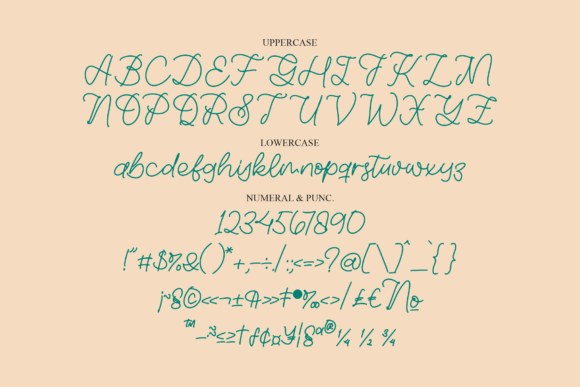 UPPERCASE
ABCDEFGHIJKLM
NOPQRSTUVWXYZ
LOWERCASE
abcdefghijklmnopqrstuvwxyz
NUMERAL & PUNC.
1234567890
!"#$%&()*+,-÷./:;<=>?@[\]^_`{}
¡~§©<<¬±¶>>‡•‰<>/£€№
™–÷≤≥†ƒ¢¤¥¦§ª®¼ ½ ¾